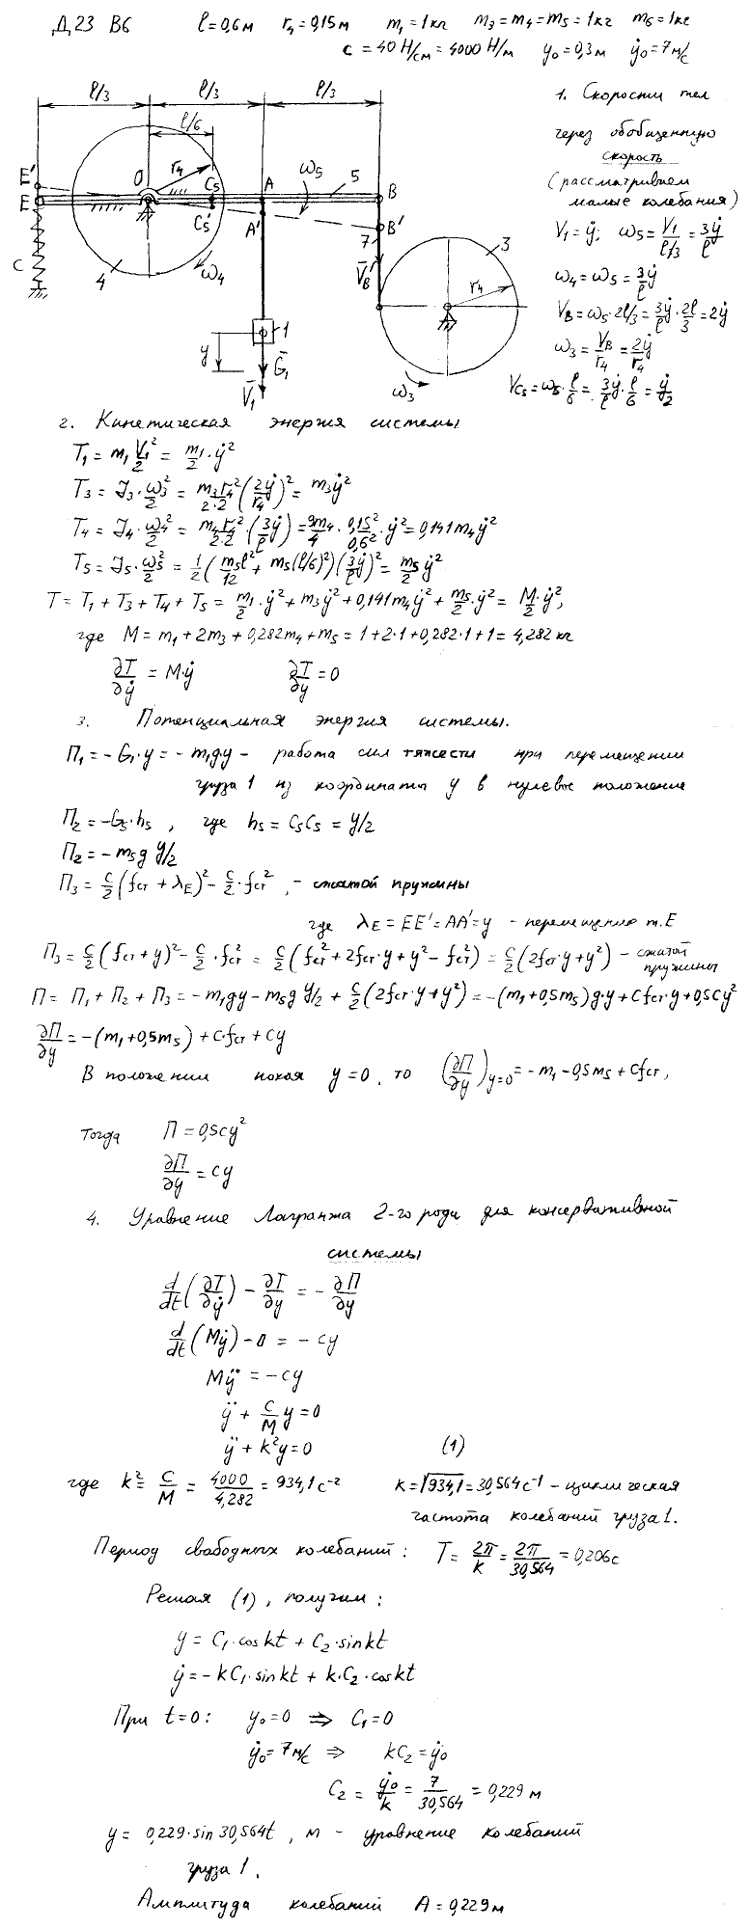 Д23 В6 l=0,6м r₄=0,15м m₁=1кг m₃=m₄=m₅=1кг m₆=1кг
c=40 Н/см=4000 Н/м y₀=0,3м ẏ₀=7м/с
l/3 l/3 l/3
l/6
r₄
E' O C₅ A ω₅ 5 B
E C₅' A' B'
7
c 4 ω₄ V̄_B 3
r₄
1
y Ḡ₁
V̄₁ ω₃
1. Скорости тел
через обобщенную
скорость
(рассматриваем
малые колебания)
V₁=ẏ; ω₅=V₁/(l/3)=3ẏ/l
ω₄=ω₅=3ẏ/l
V_B=ω₅·2l/3=3ẏ/l·2l/3=2ẏ
ω₃=V_B/r₄=2ẏ/r₄
V_C₅=ω₅·l/6=3ẏ/l·l/6=ẏ/2
2. Кинетическая энергия системы
T₁=m₁V₁²/2=m₁/2·ẏ²
T₃=J₃·ω₃²/2=m₃r₄²/2·2(2ẏ/r₄)²=m₃ẏ²
T₄=J₄·ω₄²/2=m₄r₄²/2·2·(3ẏ/l)=9m₄/4·0,15²/0,6²·ẏ²=0,141m₄ẏ²
T₅=J₅·ω₅²/2=1/2(m₅l²/12+m₅(l/6)²)(3ẏ/l)²=m₅/2ẏ²
T=T₁+T₃+T₄+T₅=m₁/2·ẏ²+m₃ẏ²+0,141m₄ẏ²+m₅/2·ẏ²=M/2·ẏ²,
где M=m₁+2m₃+0,282m₄+m₅=1+2·1+0,282·1+1=4,282 кг
∂T/∂ẏ=M·ẏ ∂T/∂y=0
3. Потенциальная энергия системы.
П₁=-G₁·y=-m₁gy - работа сил тяжести при перемещении
груза 1 из координаты y в нулевое положение
П₂=-G₅·h₅, где h₅=C₅C₅=y/2
П₂=-m₅g y/2
П₃=c/2(fст+λ_E)²-c/2·fст², - сжатой пружины
где λ_E=EE'=AA'=y - перемещение т.E
П₃=c/2(fст+y)²-c/2·fст²=c/2(fст²+2fст·y+y²-fст²)=c/2(2fст·y+y²) - сжатой пружины
П=П₁+П₂+П₃=-m₁gy-m₅g y/2+c/2(2fст·y+y²)=-(m₁+0,5m₅)g·y+cfст·y+0,5cy²
∂П/∂y=-(m₁+0,5m₅)+c·fст+cy
В положении покоя y=0, то (∂П/∂y)y=0=-m₁-0,5m₅+cfст,
тогда П=0,5cy²
∂П/∂y=cy
4. Уравнение Лагранжа 2-го рода для консервативной
системы
d/dt(∂T/∂ẏ)-∂T/∂y=-∂П/∂y
d/dt(Mẏ)-0=-cy
Mÿ=-cy
ÿ+c/M y=0
ÿ+k²y=0 (1)
где k²=c/M=4000/4,282=934,1 с⁻² k=√934,1=30,564 с⁻¹ - циклическая
частота колебаний груза 1.
Период свободных колебаний: T=2π/k=2π/30,564=0,206с
Решая (1), получим:
y=C₁·coskt+C₂·sinkt
ẏ=-kC₁·sinkt+k·C₂·coskt
При t=0: y₀=0 ⇒ C₁=0
ẏ₀=7м/с ⇒ kC₂=ẏ₀
C₂=ẏ₀/k=7/30,564=0,229 м
y=0,229·sin30,564t, м - уравнение колебаний
груза 1.
Амплитуда колебаний A=0,229м